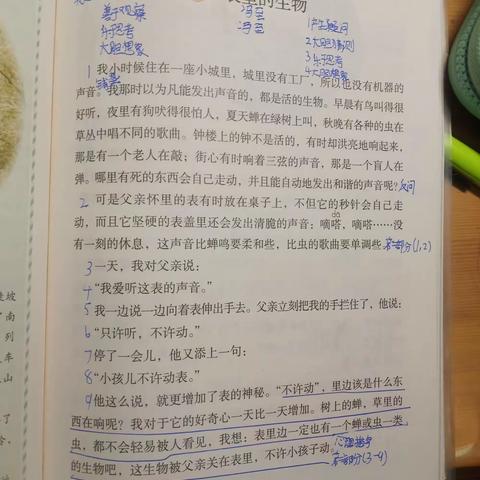 善于观察
乐于思考
大胆想象
表里的生物
冯至
冯至
1产生疑问
2大胆猜测
3乐思考
4大胆想象
1 我小时候住在一座小城里，城里没有工厂，所以也没有机器的
声音。我那时以为凡能发出声音的，都是活的生物。早晨有鸟叫得很
好听，夜里有狗吠得很怕人，夏天蝉在绿树上叫，秋晚有各种的虫在
草丛中唱不同的歌曲。钟楼上的钟不是活的，有时却洪亮地响起来，
那是有一个老人在敲；街心有时响着三弦的声音，那是一个盲人在
弹。哪里有死的东西会自己走动，并且能自动地发出和谐的声音呢？反问
2 可是父亲怀里的表有时放在桌子上，不但它的秒针会自己走
动，而且它坚硬的表盖里还会发出清脆的声音：嘀嗒，嘀嗒……没
dā
有一刻的休息，这声音比蝉鸣要柔和些，比虫的歌曲要单调些。第一部分(1,2)
3 一天，我对父亲说：
4 “我爱听这表的声音。”
5 我一边说一边向着表伸出手去。父亲立刻把我的手拦住了，他说：
6 “只许听，不许动。”
7 停了一会儿，他又添上一句：
8 “小孩儿不许动表。”
9 他这么说，就更增加了表的神秘。“不许动”，里边该是什么东
西在响呢？我对于它的好奇心一天比一天增加。树上的蝉，草里的
虫，都不会轻易被人看见，我想：表里边一定也有一个蝉或虫一类
的生物吧，这生物被父亲关在表里，不许小孩子动。
(3-9)
坡
南
列
车
山
了